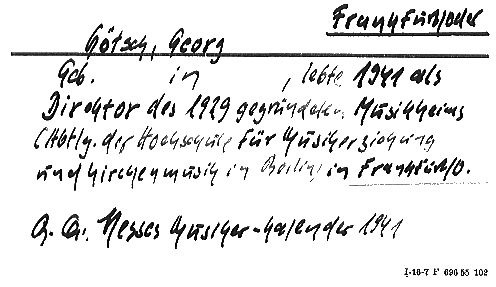 Frankfurt/Oder
Götsch, Georg
Geb. in , lebte 1941 als
Direktor des 1929 gegründeten Musikheims
(Abtlg. der Hochschule für Musikerziehung
und Kirchenmusik in Berlin) in Frankfurt/O.
Q. Hesses Musiker-Kalender 1941
I-16-7 F 696 55 102